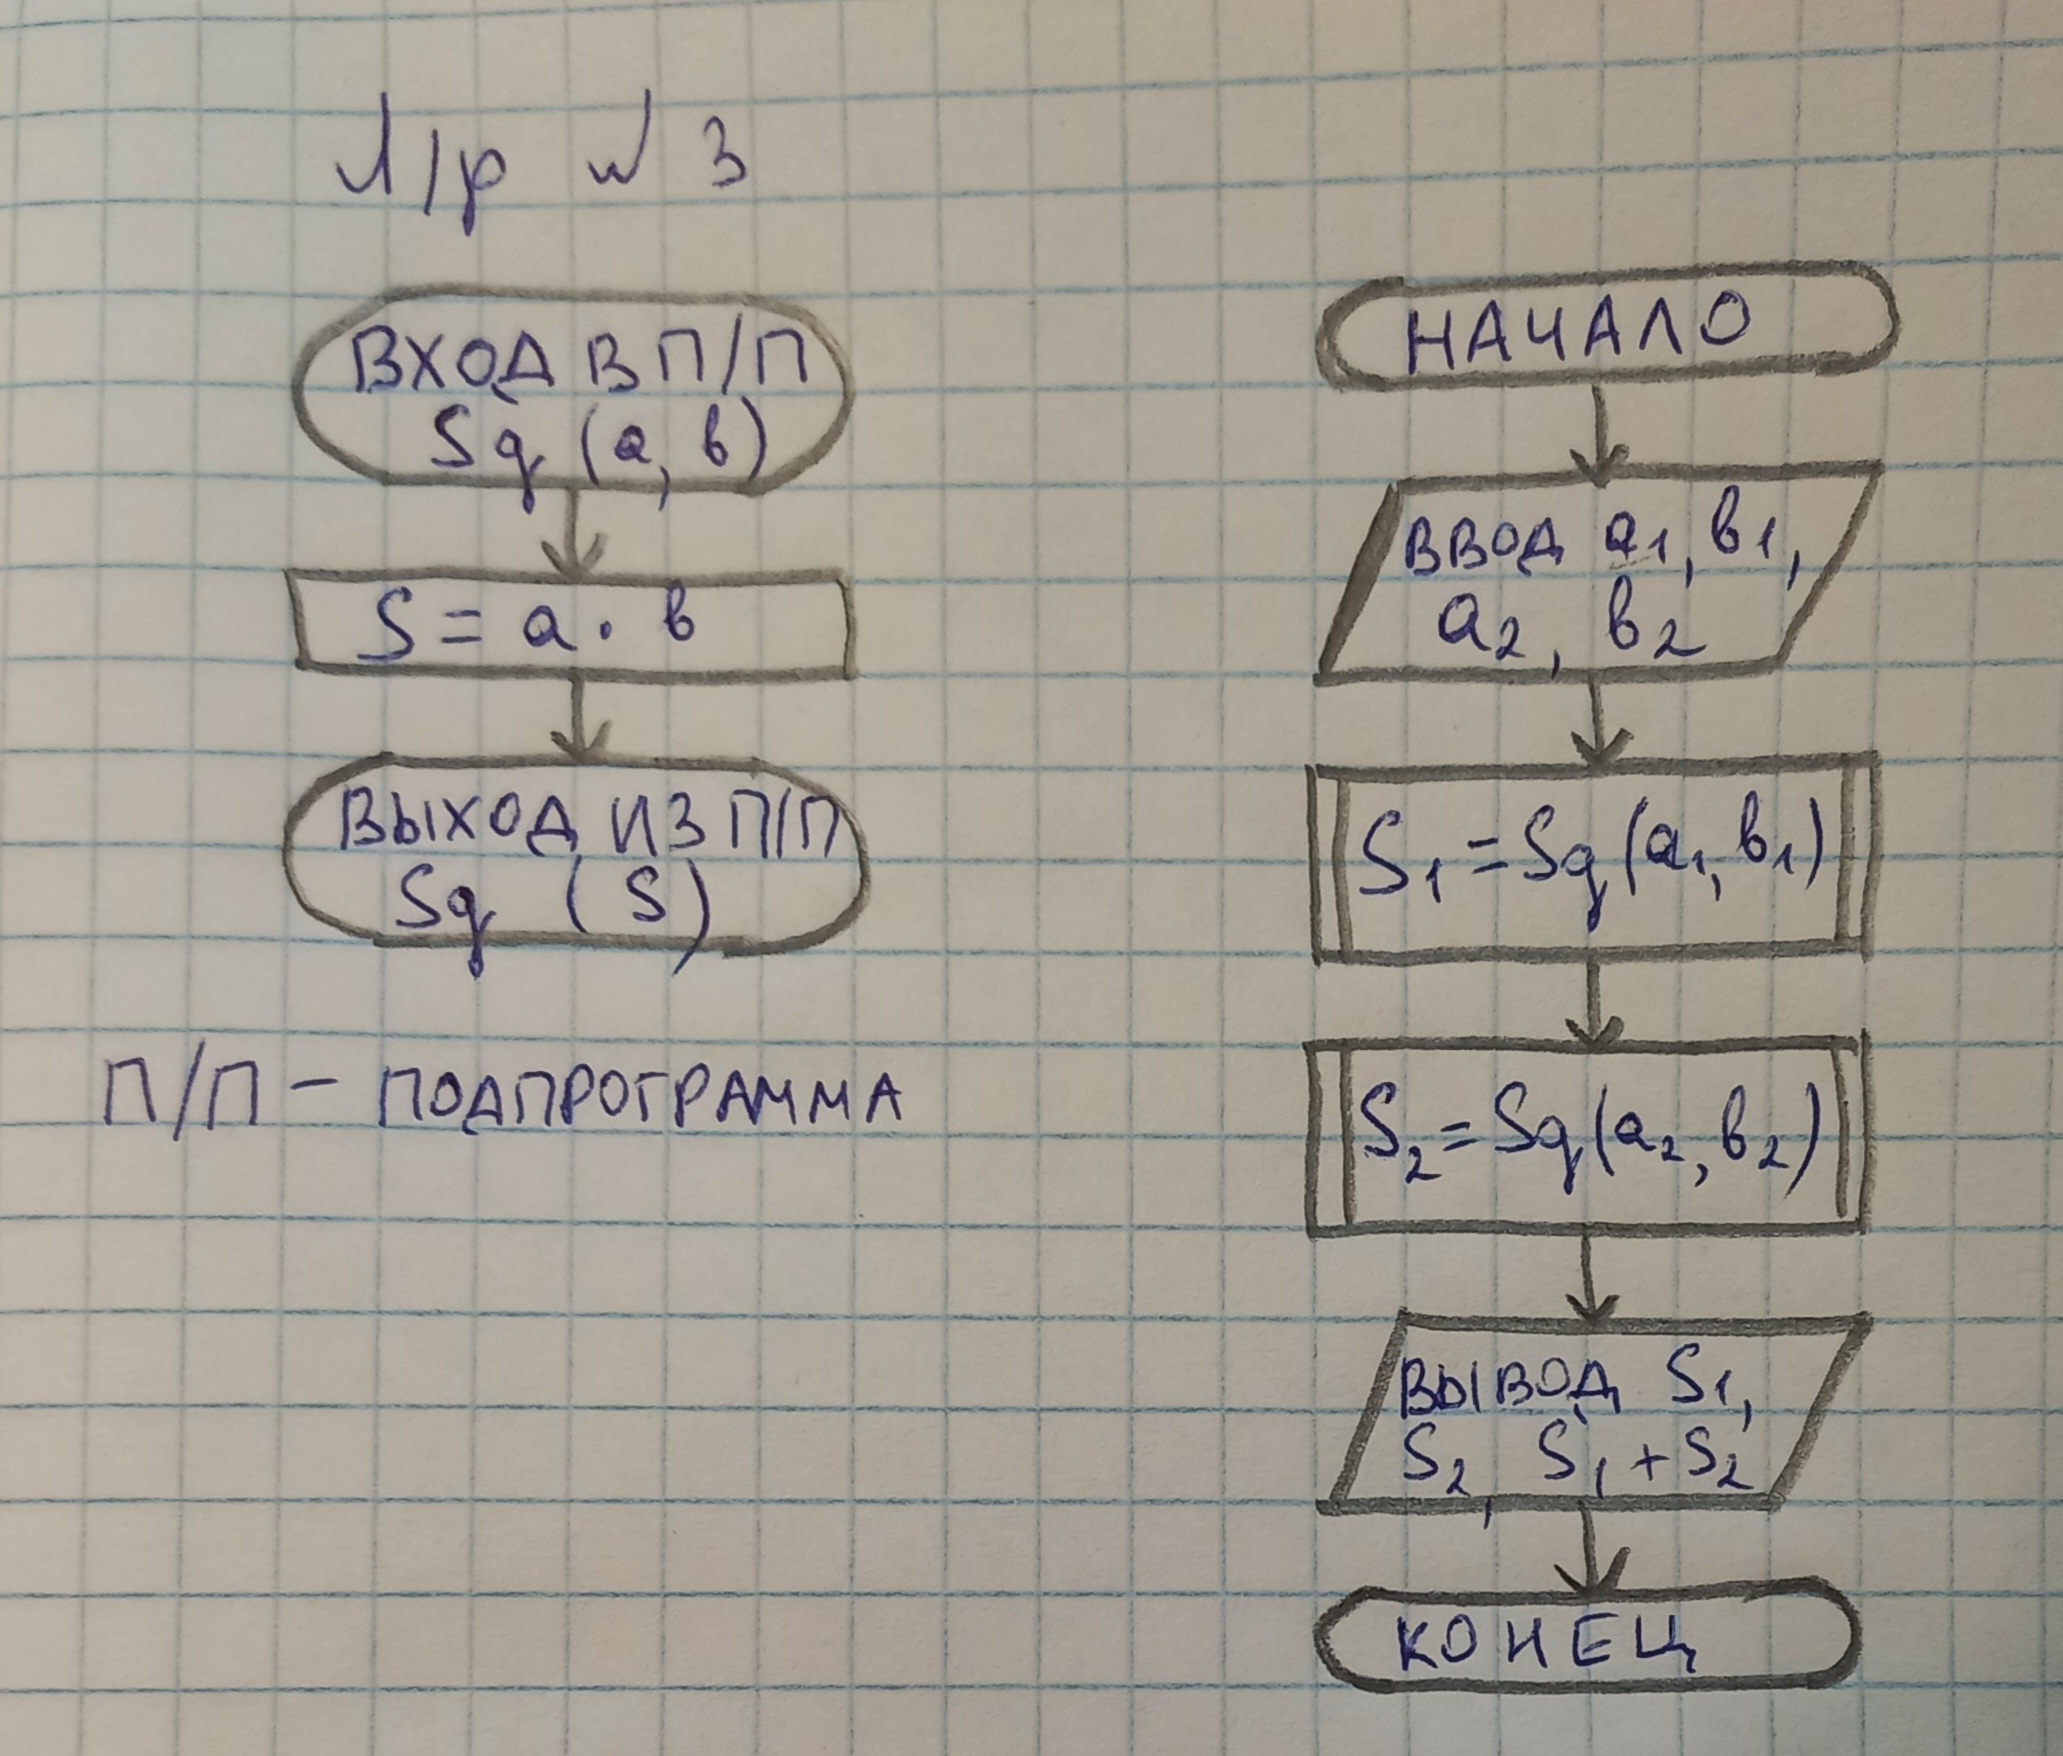 Л/р №3
ВХОД В П/П
Sq (a, b)
S = a · b
ВЫХОД ИЗ П/П
Sq (S)
П/П – ПОДПРОГРАММА
НАЧАЛО
ВВОД a1, b1,
a2, b2
S1 = Sq(a1, b1)
S2 = Sq(a2, b2)
ВЫВОД S1,
S2, S1 + S2
КОНЕЦ